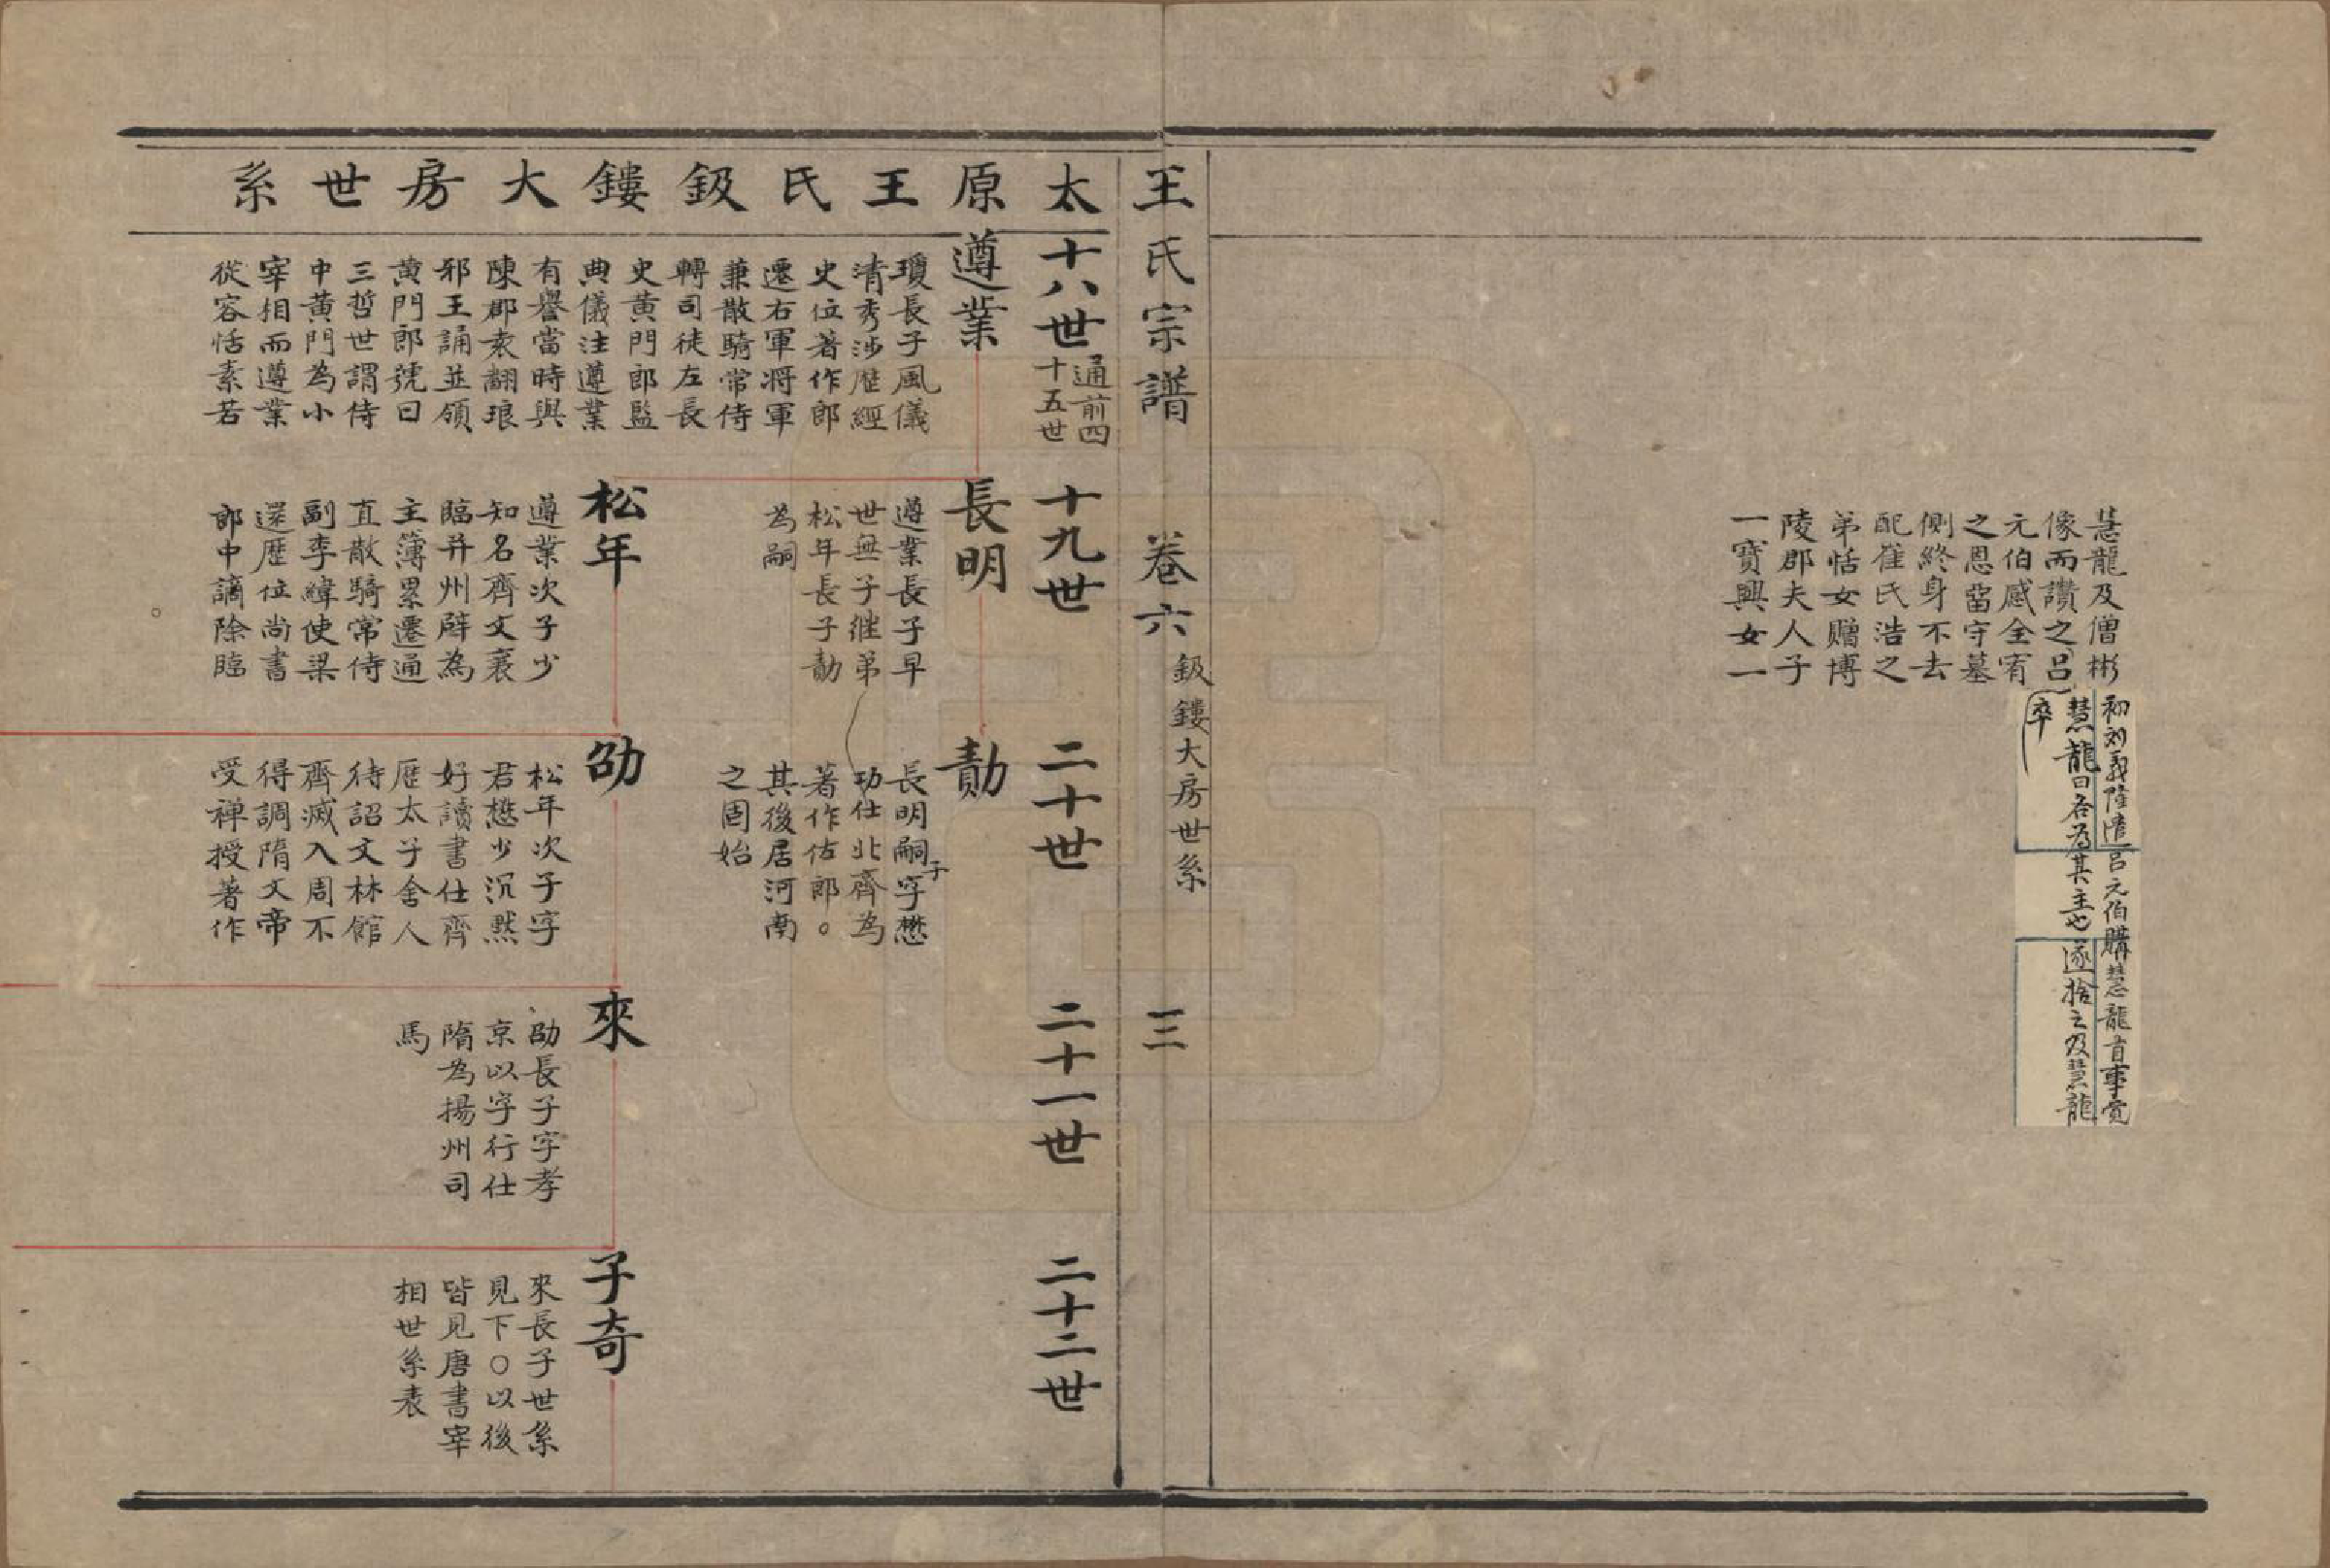 慧龍及僧彬
像而讚之呂
元伯感全宥
之恩留守墓
側終身不去
配崔氏浩之
弟恬女贈博
陵郡夫人子
一寶興女一
初刘義隆遣呂元伯購慧龍首事覚
慧龍曰各為其主也遂捨之及慧龍
卒
王氏宗譜 卷六 鈒鏤大房世系 三
太原王氏鈒鏤大房世系
十八世 通前四
十五世
十九世
二十世
二十一世
二十二世
遵業
瓊長子風儀
清秀涉歷經
史位著作郎
遷右軍将軍
兼散騎常侍
轉司徒左長
史黃門郎監
典儀注遵業
有譽當時與
陳郡袁翻琅
邪王誦並領
黃門郎號曰
三哲世謂侍
中黃門為小
宰相而遵業
從容恬素若
長明
遵業長子早
世無子繼弟
松年長子勣
為嗣
松年
遵業次子少
知名齊文襄
臨并州辟為
主簿累遷通
直散騎常侍
副李緯使梁
還歷位尚書
郎中謫除臨
勣
長明嗣子字懋
功仕北齊為
著作佐郎。
其後居河南
之固始
劭
松年次子字
君懋少沉默
好讀書仕齊
歷太子舍人
待詔文林館
齊滅入周不
得調隋文帝
受禅授著作
來
劭長子字孝
京以字行仕
隋為揚州司
馬
子奇
來長子世系
見下○以後
皆見唐書宰
相世系表